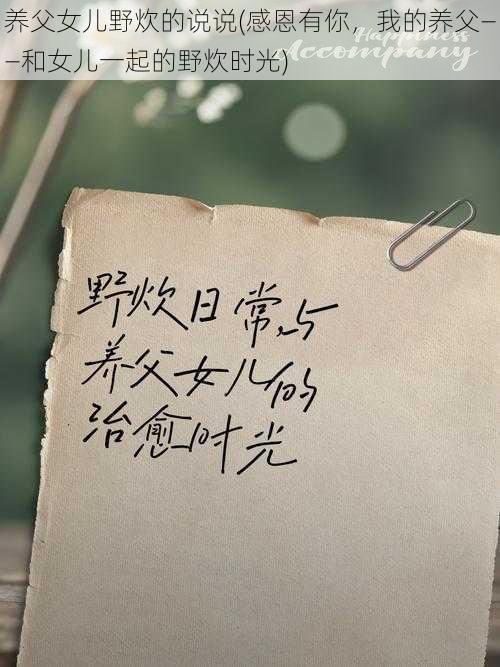 养父女儿野炊的说说(感恩有你，我的养父—
—和女儿一起的野炊时光)
Happiness
Accompany
野炊日常,与
养父女儿的
治愈时光